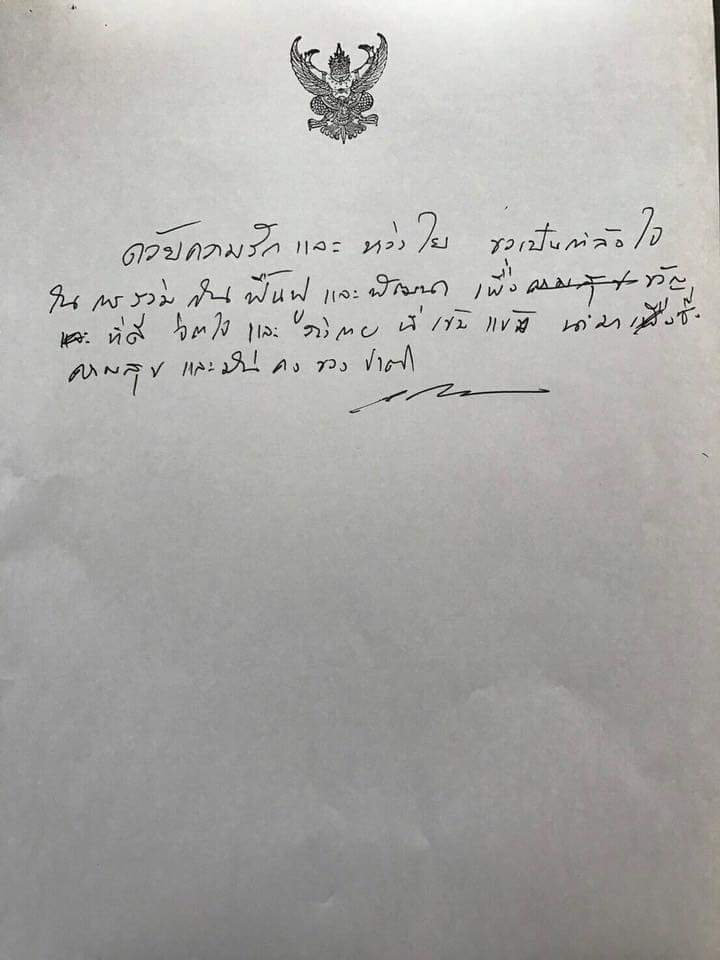 ด้วยความรัก และ ห่วงใย ขอเป็นกำลังใจ
ใน การร่วม กัน ฟื้นฟู และ พัฒนา เพื่อ ความสุข ขวัญ
และ ที่ดี จิตใจ และ ร่างกาย ที่ เข้ม แข็ง นำมา เพื่อ ซึ่ง
ความสุข และ มั่น คง ของ ชาติ